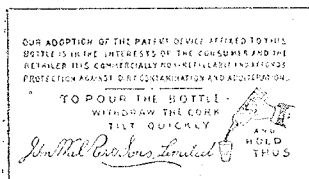 OUR ADOPTION OF THE PATENT DEVICE AFFIXED TO THIS
BOTTLE IS IN THE INTERESTS OF THE CONSUMER AND THE
RETAILER IT IS COMMERCIALLY NON-REFILLABLE AND AFFORDS
PROTECTION AGAINST DIRT CONTAMINATION AND ADULTERATION.
TO POUR THE BOTTLE -
WITHDRAW THE CORK
TILT QUICKLY
AND
HOLD
THUS
Sons, Limited